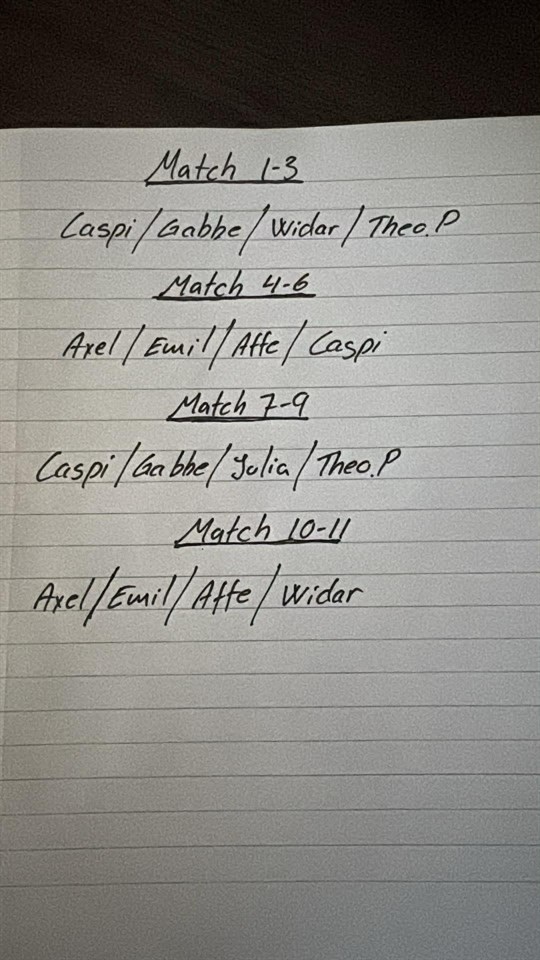 Match 1-3
Caspi/Gabbe/Widar/Theo.P
Match 4-6
Axel/Emil/Affe/Caspi
Match 7-9
Caspi/Gabbe/Julia/Theo.P
Match 10-11
Axel/Emil/Affe/Widar